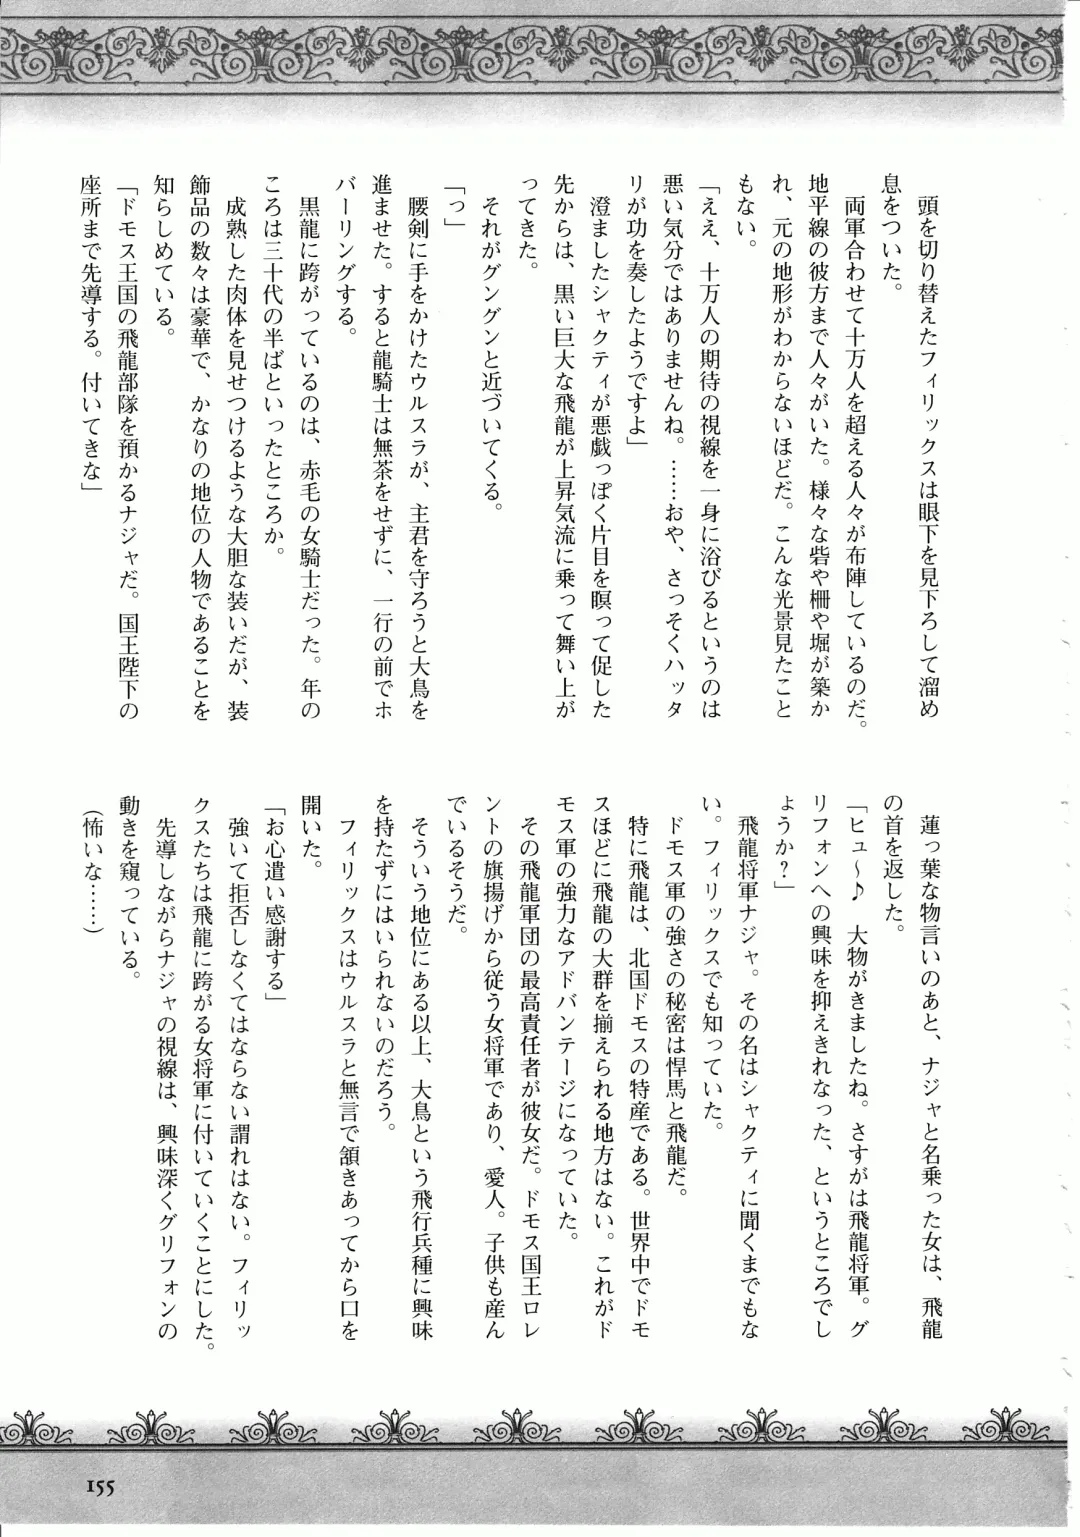 頭を切り替えたフィリックスは眼下を見下ろして溜め
息をついた。
　両軍合わせて十万人を超える人々が布陣しているのだ。
地平線の彼方まで人々がいた。様々な砦や柵や堀が築か
れ、元の地形がわからないほどだ。こんな光景見たこと
もない。
「ええ、十万人の期待の視線を一身に浴びるというのは
悪い気分ではありませんね。……おや、さっそくハッタ
リが功を奏したようですよ」
　澄ましたシャクティが悪戯っぽく片目を瞑って促した
先からは、黒い巨大な飛龍が上昇気流に乗って舞い上が
ってきた。
　それがグングンと近づいてくる。
「っ」
　腰剣に手をかけたウルスラが、主君を守ろうと大鳥を
進ませた。すると龍騎士は無茶をせずに、一行の前でホ
バーリングする。
　黒龍に跨がっているのは、赤毛の女騎士だった。年の
ころは三十代の半ばといったところか。
　成熟した肉体を見せつけるような大胆な装いだが、装
飾品の数々は豪華で、かなりの地位の人物であることを
知らしめている。
「ドモス王国の飛龍部隊を預かるナジャだ。国王陛下の
座所まで先導する。付いてきな」
　蓮っ葉な物言いのあと、ナジャと名乗った女は、飛龍
の首を返した。
「ヒュ～♪　大物がきましたね。さすがは飛龍将軍。グ
リフォンへの興味を抑えきれなった、というところでし
ょうか？」
　飛龍将軍ナジャ。その名はシャクティに聞くまでもな
い。フィリックスでも知っていた。
　ドモス軍の強さの秘密は悍馬と飛龍だ。
　特に飛龍は、北国ドモスの特産である。世界中でドモ
スほどに飛龍の大群を揃えられる地方はない。これがド
モス軍の強力なアドバンテージになっていた。
　その飛龍軍団の最高責任者が彼女だ。ドモス国王ロレ
ントの旗揚げから従う女将軍であり、愛人。子供も産ん
でいるそうだ。
　そういう地位にある以上、大鳥という飛行兵種に興味
を持たずにはいられないのだろう。
　フィリックスはウルスラと無言で頷きあってから口を
開いた。
「お心遣い感謝する」
　強いて拒否しなくてはならない謂れはない。フィリッ
クスたちは飛龍に跨がる女将軍に付いていくことにした。
　先導しながらナジャの視線は、興味深くグリフォンの
動きを窺っている。
（怖いな……）
155